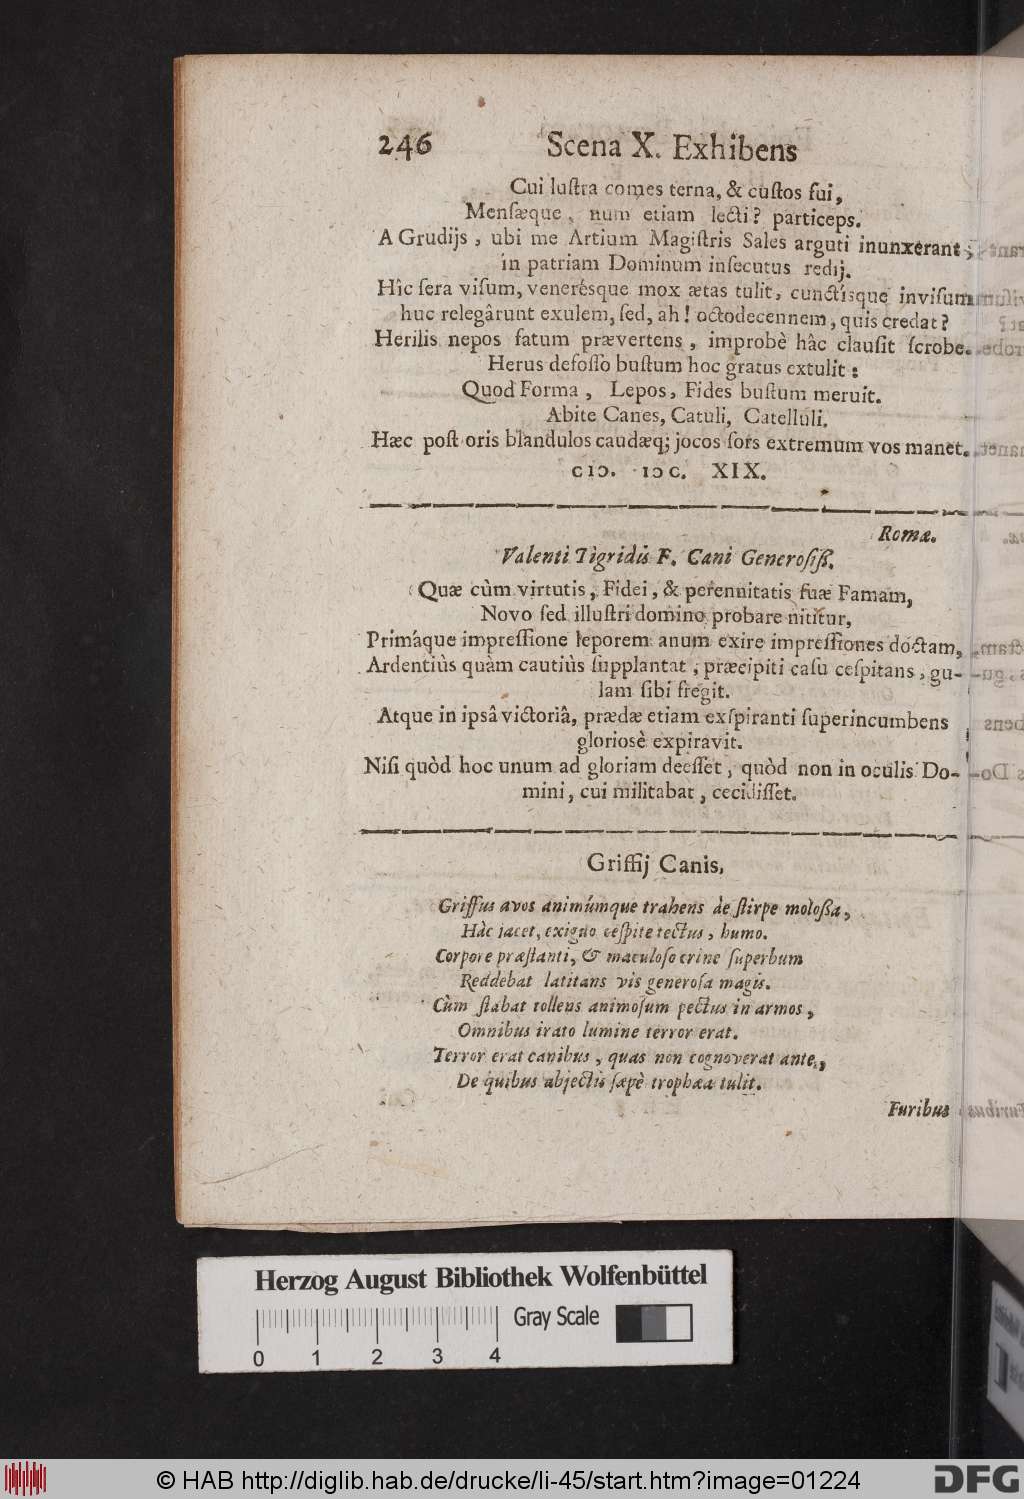 246 Scena X. Exhibens
Cui luſtra comes terna, & cuſtos ſui,
Menſæque, num etiam lecti? particeps.
A Grudijs, ubi me Artium Magiſtris Sales arguti inunxerant;
in patriam Dominum inſecutus redij.
Hîc ſera viſum, veneréſque mox ætas tulit, cunctíſque inviſum
huc relegârunt exulem, ſed, ah! octodecennem, quis credat?
Herilis nepos fatum prævertens, improbè hâc clauſit ſcrobe.
Herus defoſſo buſtum hoc gratus extulit:
Quod Forma, Lepos, Fides buſtum meruit.
Abite Canes, Catuli, Catelluli.
Hæc poſt oris blandulos caudæq; jocos ſors extremum vos manet.
CIↃ. IↃC. XIX.
Romæ.
Valenti Tigridis F. Cani Generoſiß.
Quæ cùm virtutis, Fidei, & perennitatis ſuæ Famam,
Novo ſed illuſtri domino probare nititur,
Primáque impreſſione leporem anum exire impreſſiones doctam,
Ardentiùs quàm cautiùs ſupplantat, præcipiti caſu ceſpitans, gu-
lam ſibi fregit.
Atque in ipſâ victoriâ, prædæ etiam exſpiranti ſuperincumbens
glorioſè expiravit.
Niſi quòd hoc unum ad gloriam deeſſet, quòd non in oculis Do-
mini, cui militabat, cecidiſſet.
Griffij Canis,
Griffus avos animúmque trahens de ſtirpe moloßa,
Hàc jacet, exiguo ceſpite tectus, humo.
Corpore præſtanti, & maculoſo crine ſuperbum
Reddebat latitans vis generoſa magis.
Cùm ſtabat tollens animoſum pectus in armos,
Omnibus irato lumine terror erat.
Terror erat canibus, quas non cognoverat ante,
De quibus abjectis ſæpè trophæa tulit.
Furibus
Herzog August Bibliothek Wolfenbüttel
Gray Scale
0 1 2 3 4
© HAB http://diglib.hab.de/drucke/li-45/start.htm?image=01224
DFG